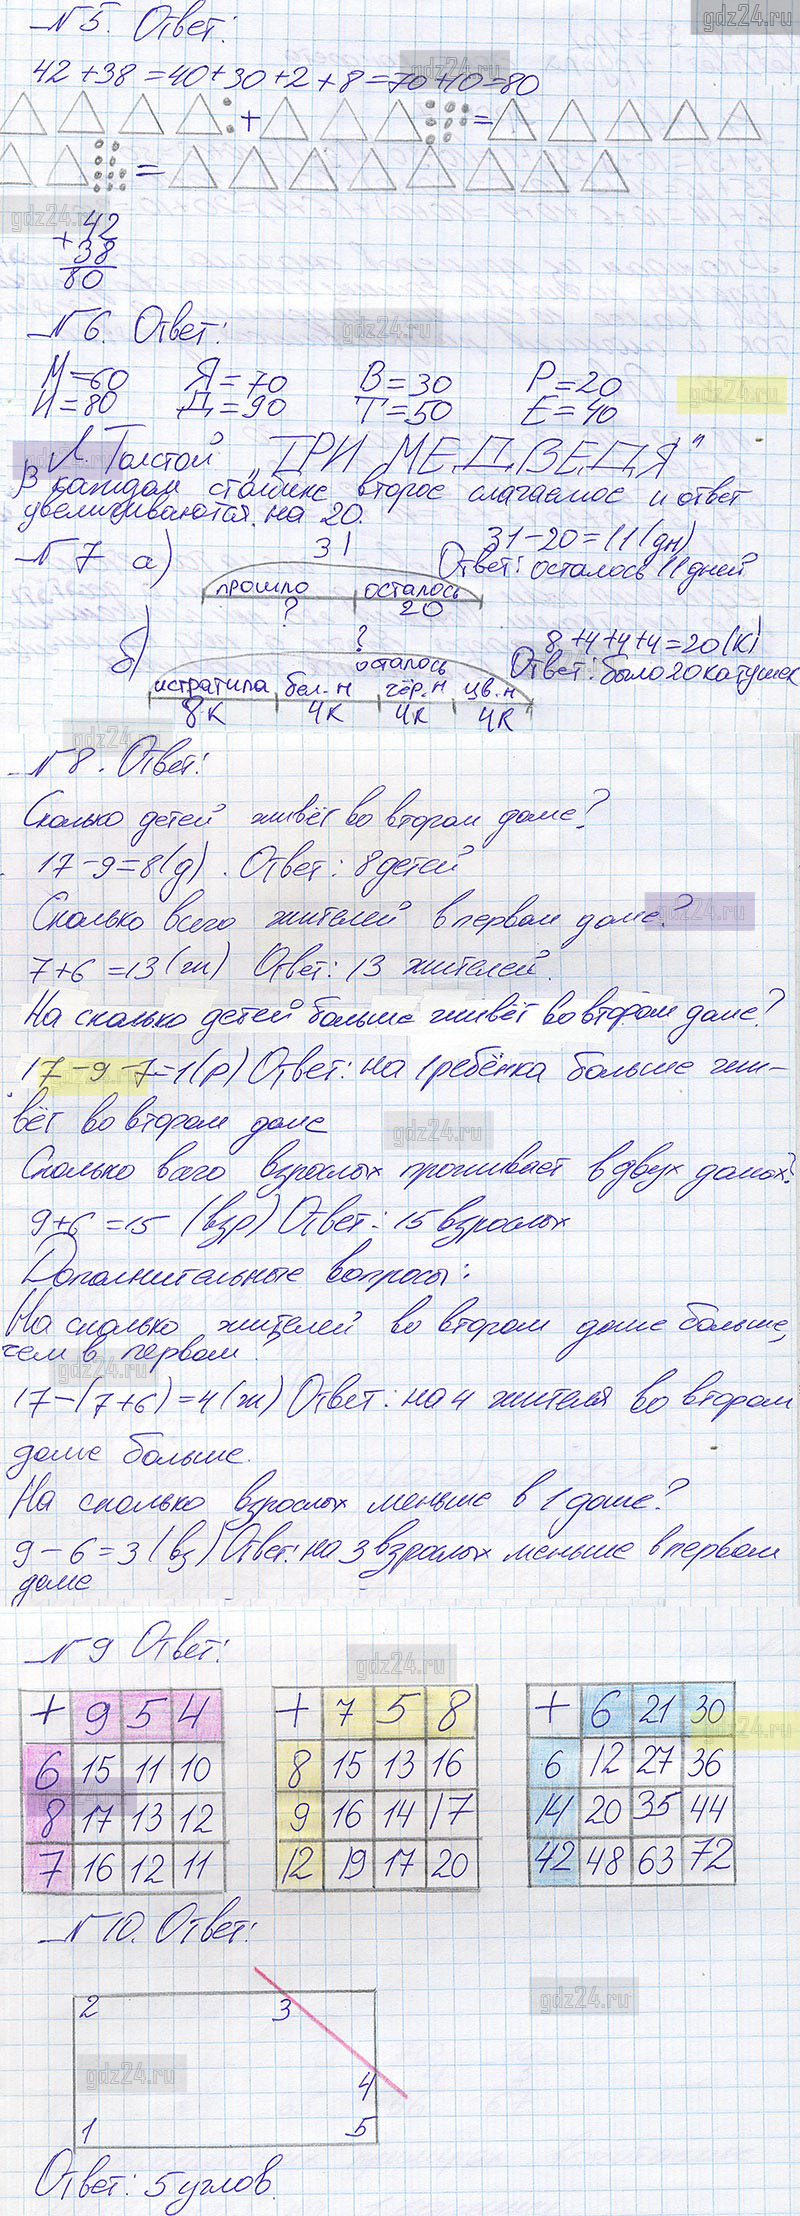 gdz24.ru
№5. Ответ:
42+38=40+30+2+8=70+10=80
gdz24.ru
+ =
=
gdz24.ru
42
+
38
80
№6. Ответ:
gdz24.ru
М=60 Я=70 В=30 Р=20
gdz24.ru
И=80 Д=90 Т=50 Е=40
Л. Толстой „ТРИ МЕДВЕДЯ"
В каждом столбике второе слагаемое и ответ
увеличиваются на 20.
№7 а) 31 31-20=11(дн)
Ответ: осталось 11 дней
прошло осталось
? 20
б) ? 8+4+4+4=20(к)
осталось Ответ: было 20 катушек
истратила бел.н чёр.н цв.н
8к 4к 4к 4к
gdz24.ru
№8. Ответ:
Сколько детей живёт во втором доме?
17-9=8(д). Ответ: 8 детей
Сколько всего жителей в первом доме?
gdz24.ru
7+6=13(ж) Ответ: 13 жителей.
На сколько детей больше живёт во втором доме?
17-9-7=1(р) Ответ: на 1 ребёнка больше жи-
вёт во втором доме
gdz24.ru
Сколько всего взрослых проживает в двух домах?
9+6=15 (взр) Ответ: 15 взрослых
Дополнительные вопросы:
На сколько жителей во втором доме больше,
чем в первом?
gdz24.ru
17-(7+6)=4(ж) Ответ: на 4 жителя во втором
доме больше.
На сколько взрослых меньше в 1 доме?
9-6=3(вз) Ответ: на 3 взрослых меньше в первом
доме
№9 Ответ:
gdz24.ru
+ 9 5 4 + 7 5 8 + 6 21 30
gdz24.ru
6 15 11 10 8 15 13 16 6 12 27 36
8 17 13 12 9 16 14 17 14 20 35 44
7 16 12 11 12 19 17 20 42 48 63 72
№10. Ответ:
gdz24.ru
2 3
gdz24.ru
4
1 5
Ответ: 5 углов.